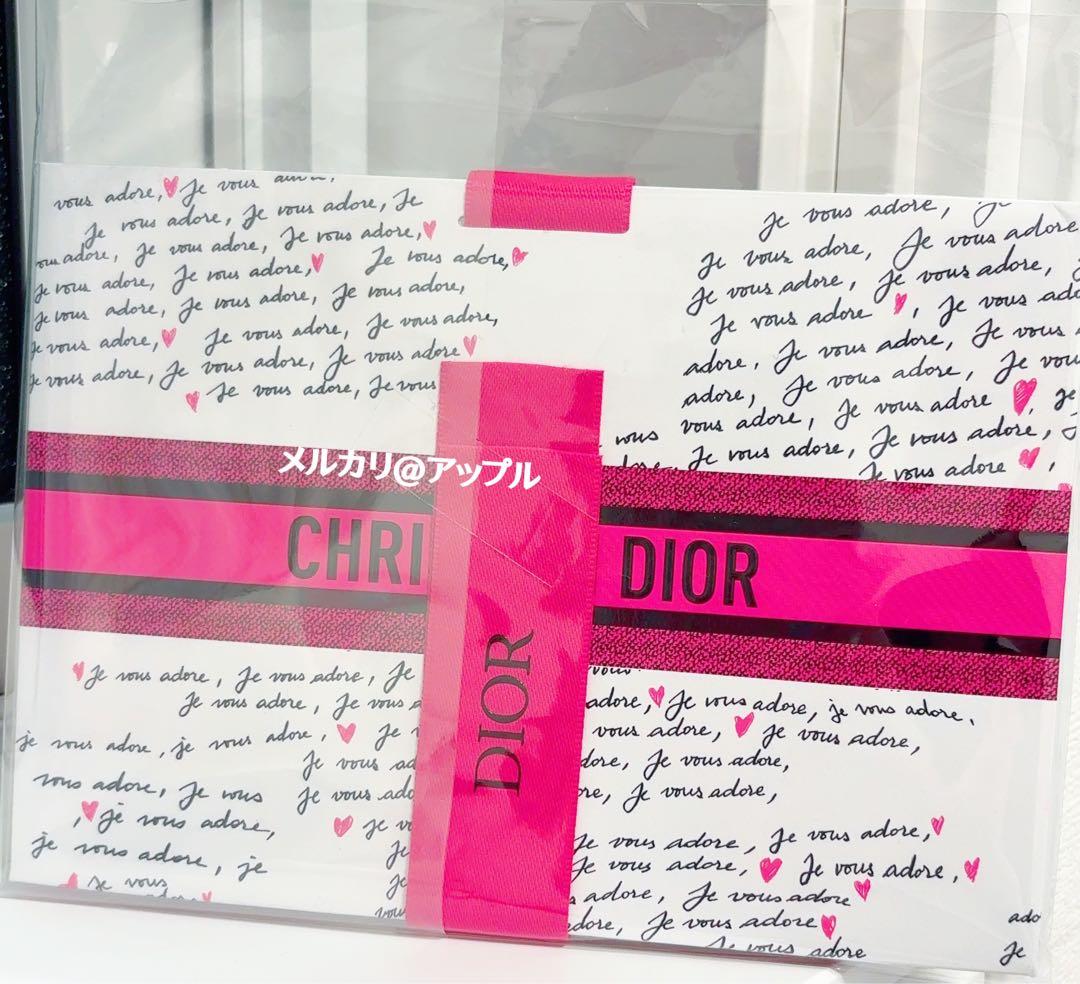 vous adore, Je vous adore,
Je vous adore, Je vous adore, Je
vous adore, Je vous adore, Je vous adore,
Je vous adore, Je vous adore, Je vous adore,
Je vous adore, Je vous adore, Je vous adore,
Je vous adore, Je vous adore, Je vous adore,
Je vous adore, Je vous adore, Je vous adore
Je vous adore, Je vous adore, Je vous adore
Je vous adore, Je vous
Je vous adore,
Je vous adore, Je vous adore
Je vous adore, Je vous adore,
Je vous adore, Je vous
adore, Je vous adore, Je vous
adore, Je vous adore, Je vous
vous adore, Je vous adore, Je
vous
Je vous adore, Je vous adore,
Je vous adore,
メルカリ@アップル
CHRI
DIOR
DIOR
Je vous adore, Je vous adore, Je
Je vous adore, Je vous
je vous adore, je vous adore, Je
Je vous
vous adore, Je vous Je vous
je vous adore, je
je vous adore, je
Je vous
adore, Je vous adore, je vous adore,
vous adore, Je vous adore,
Je vous adore,
Je vous adore,
Je vous adore, Je vous adore,
Je vous adore, Je vous adore,
adore, Je vous adore
Je vous adore
Je vous adore
ado
Je